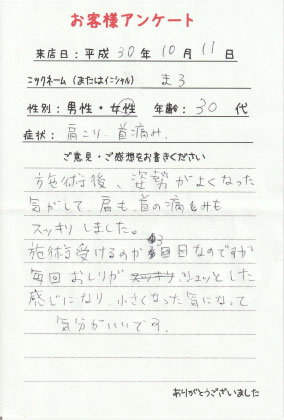 お客様アンケート
来店日：平成 30 年 10 月 11 日
ニックネーム（またはイニシャル） まる
性別：男性・女性 年齢：30 代
症状： 肩こり、首痛み、
ご意見・ご感想をお書きください
施術後、姿勢がよくなった
気がして、肩も、首の痛みも
スッキリしました。
施術受けるのが3回目なのですが
毎回おしりが シュッとした
感じになり、小さくなった気になって
気分がいいです。
ありがとうございました